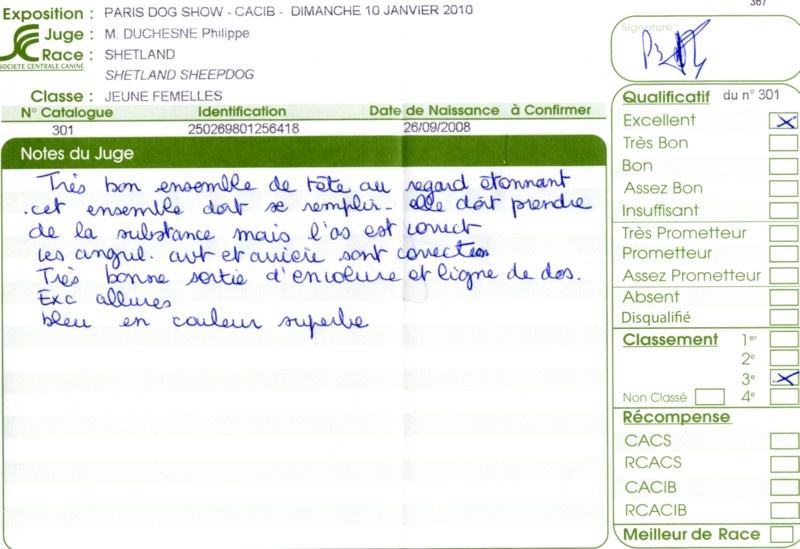 367
Exposition : PARIS DOG SHOW - CACIB - DIMANCHE 10 JANVIER 2010
Juge : M. DUCHESNE Philippe
Race : SHETLAND
SOCIÉTÉ CENTRALE CANINE
SHETLAND SHEEPDOG
Classe : JEUNE FEMELLES
N° Catalogue Identification Date de Naissance à Confirmer
301 250269801256418 26/09/2008
Notes du Juge
Très bon ensemble de tête au regard étonnant
cet ensemble doit se remplir - elle doit prendre
de la substance mais l'os est correct
les angul. avt et arrière sont correctes
Très bonne sortie d'encolure et ligne de dos.
Exc allures
bleu en couleur superbe
Signature :
Qualificatif du n° 301
Excellent X
Très Bon
Bon
Assez Bon
Insuffisant
Très Prometteur
Prometteur
Assez Prometteur
Absent
Disqualifié
Classement 1er
2e
3e X
Non Classé 4e
Récompense
CACS
RCACS
CACIB
RCACIB
Meilleur de Race